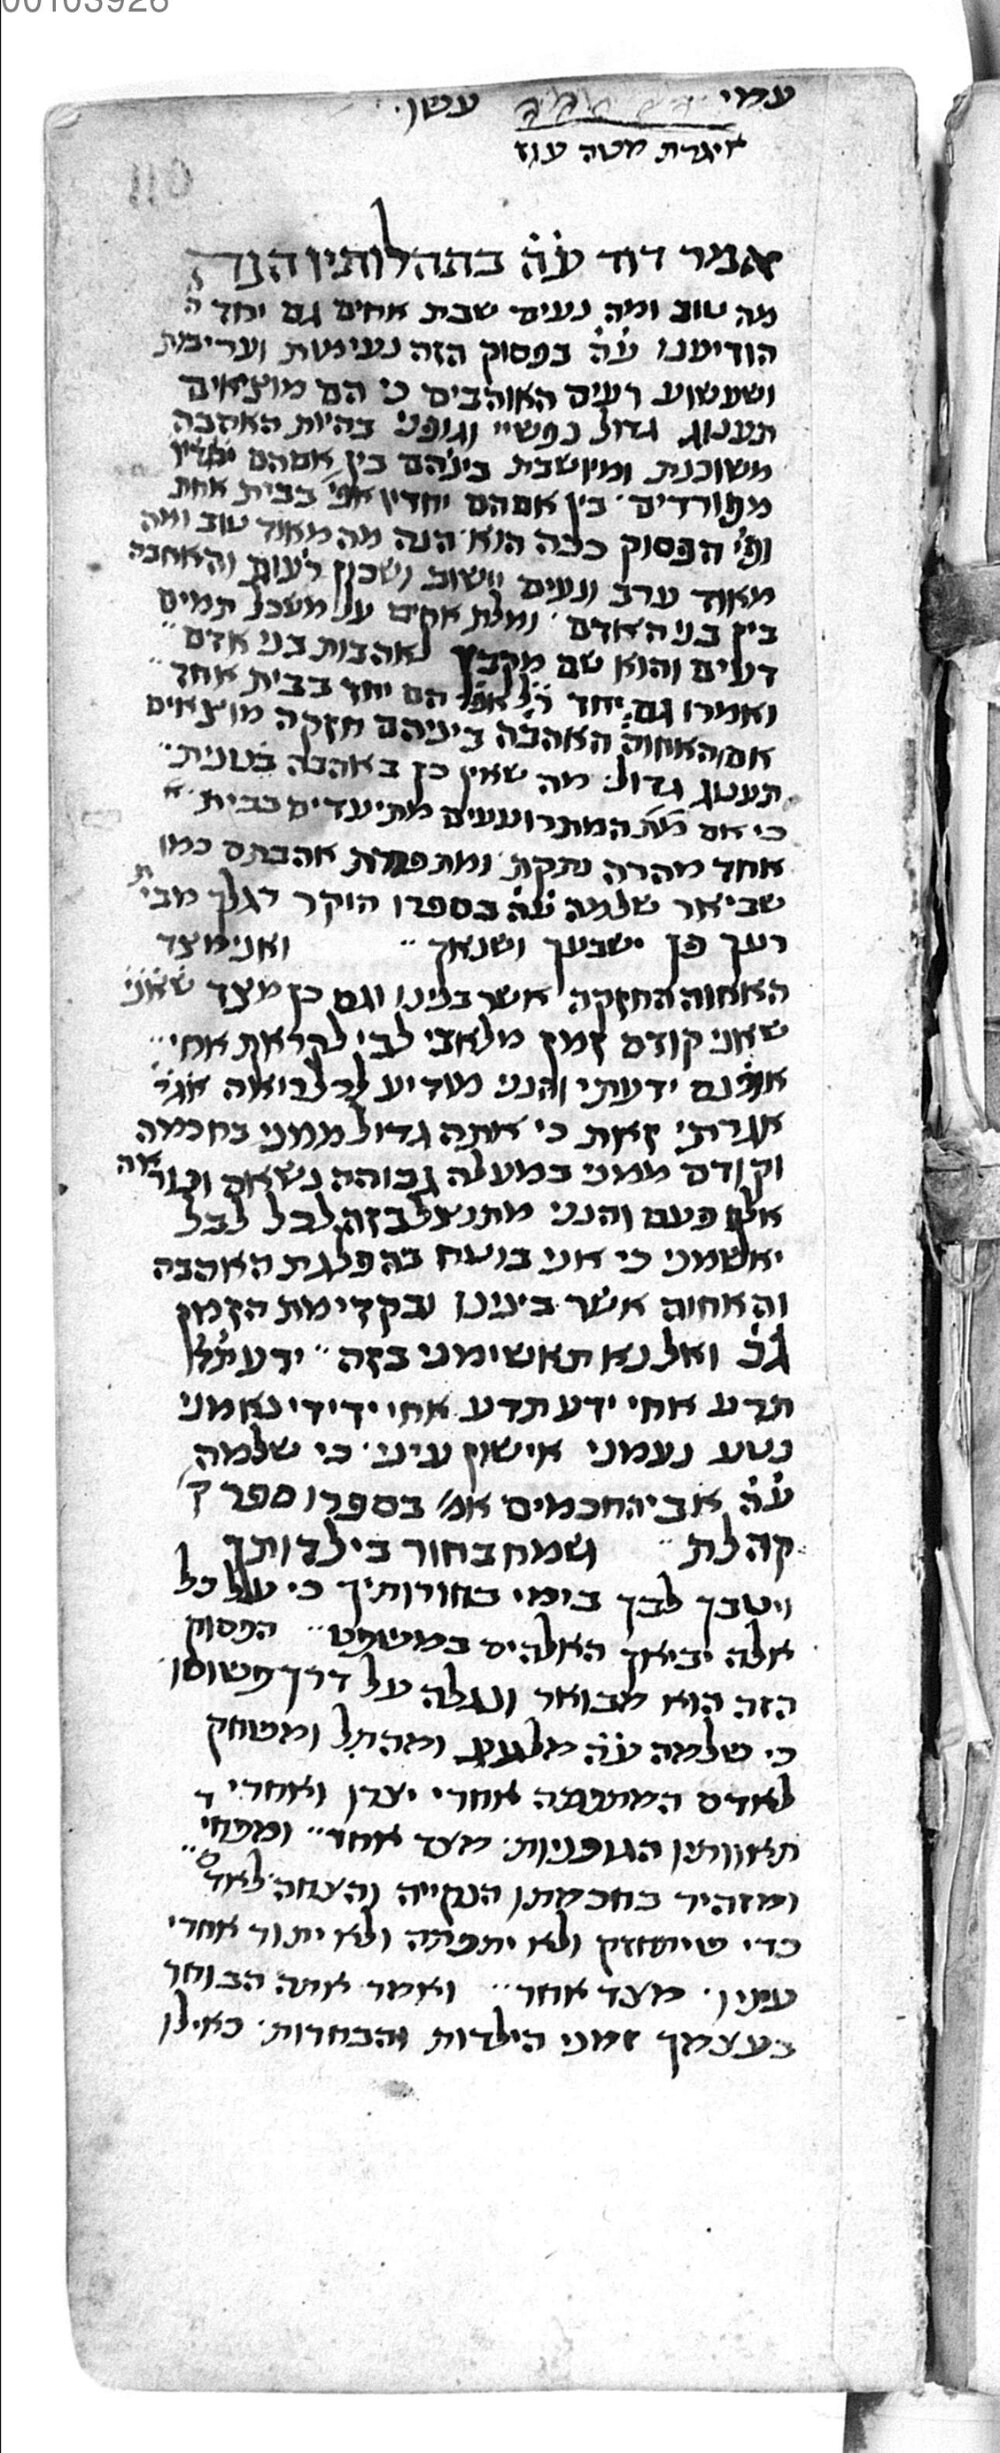 00103926
עמי עשו
איגרת מטה עוז
110
אמר דוד ע״ה בתהלותיו הנה
מה טוב ומה נעים שבת אחים גם יחד ה׳
הודיענו ע״ה בפסוק הזה נעימות ועריבות
ושעשוע רעים האוהבים כי הם מוציאים
תענוג גדול נפשיי וגופני בהיות האהבה
משוכנת ומיושבת ביניהם בין אם הם
מפורדים בין אם הם יחדיו אפי׳ בבית אחת
ופי׳ הפסוק ככה הוא הנה מה מאוד טוב ומה
מאוד ערב ונעים יישוב ושכון רעות והאחבה
בין בני האדם ומלת אחים על משכל תמים
דעים והוא שם מקבץ לאהבות בני אדם
ואמרו גם יחד ר״ל אפי׳ הם יחד בבית אחד
אם האחוה האהבה ביניהם חזקה מוצאים
תענוג גדול מה שאין כן באהבה
כי אם המתרועעים מתיעדים בבית א
אחד מהרה נתקת ומתפרדת אהבתם כמו
שביאר שלמה ע״ה בספרו הוקר רגלך מבית
רעך פן ישבעך ושנאך ואני מצד
האחוה החזקה אשר בנינו וגם כן מצד שאני
שאני קודם זמן מלאני לבי לקראת אחי
אמנם ידעתי והנני מודיע לכל רואה אגר׳
אגרתי זאת כי אתה גדול ממני בחכמה
וקודם ממני במעלה גבוהה נשאה ונוראה
אלף פעם והנני מתנצל בזה לבל לבל
יאשמני כי אני בוטח בהפלגת האהבה
והאחוה אשר בינינו ובקדימת הזמן
ג״כ ואל נא תאשימני בזה ידע ת׳
תדע אחי ידע תדע אחי ידידי נאמני
נטע נעמני אישון עיני כי שלמה
ע״ה אבי החכמים אמ׳ בספרו ספר ק׳
קהלת שמח בחור בילדותך
ויטבך לבך בימי בחורותיך כי על כל
אלה יביאך האלהים במשפט הפסוק
הזה הוא מבואר ונגלה על דרך פשוטו
כי שלמה ע״ה מלעג ומהתל ומשחק
לאדם המתפתה אחרי יצרו ואחרי ד
תאוותיו הגופניות מצד אחד ומפחיד
ומזהיר בחכמתו הנקייה והצחה לאדם
כדי שיתחזק ולא יתפתה ולא יתור אחרי
עיניו מצד אחר ואמר אתה הבוחר
בעצמך זמני הילדות והבחרות כאילו